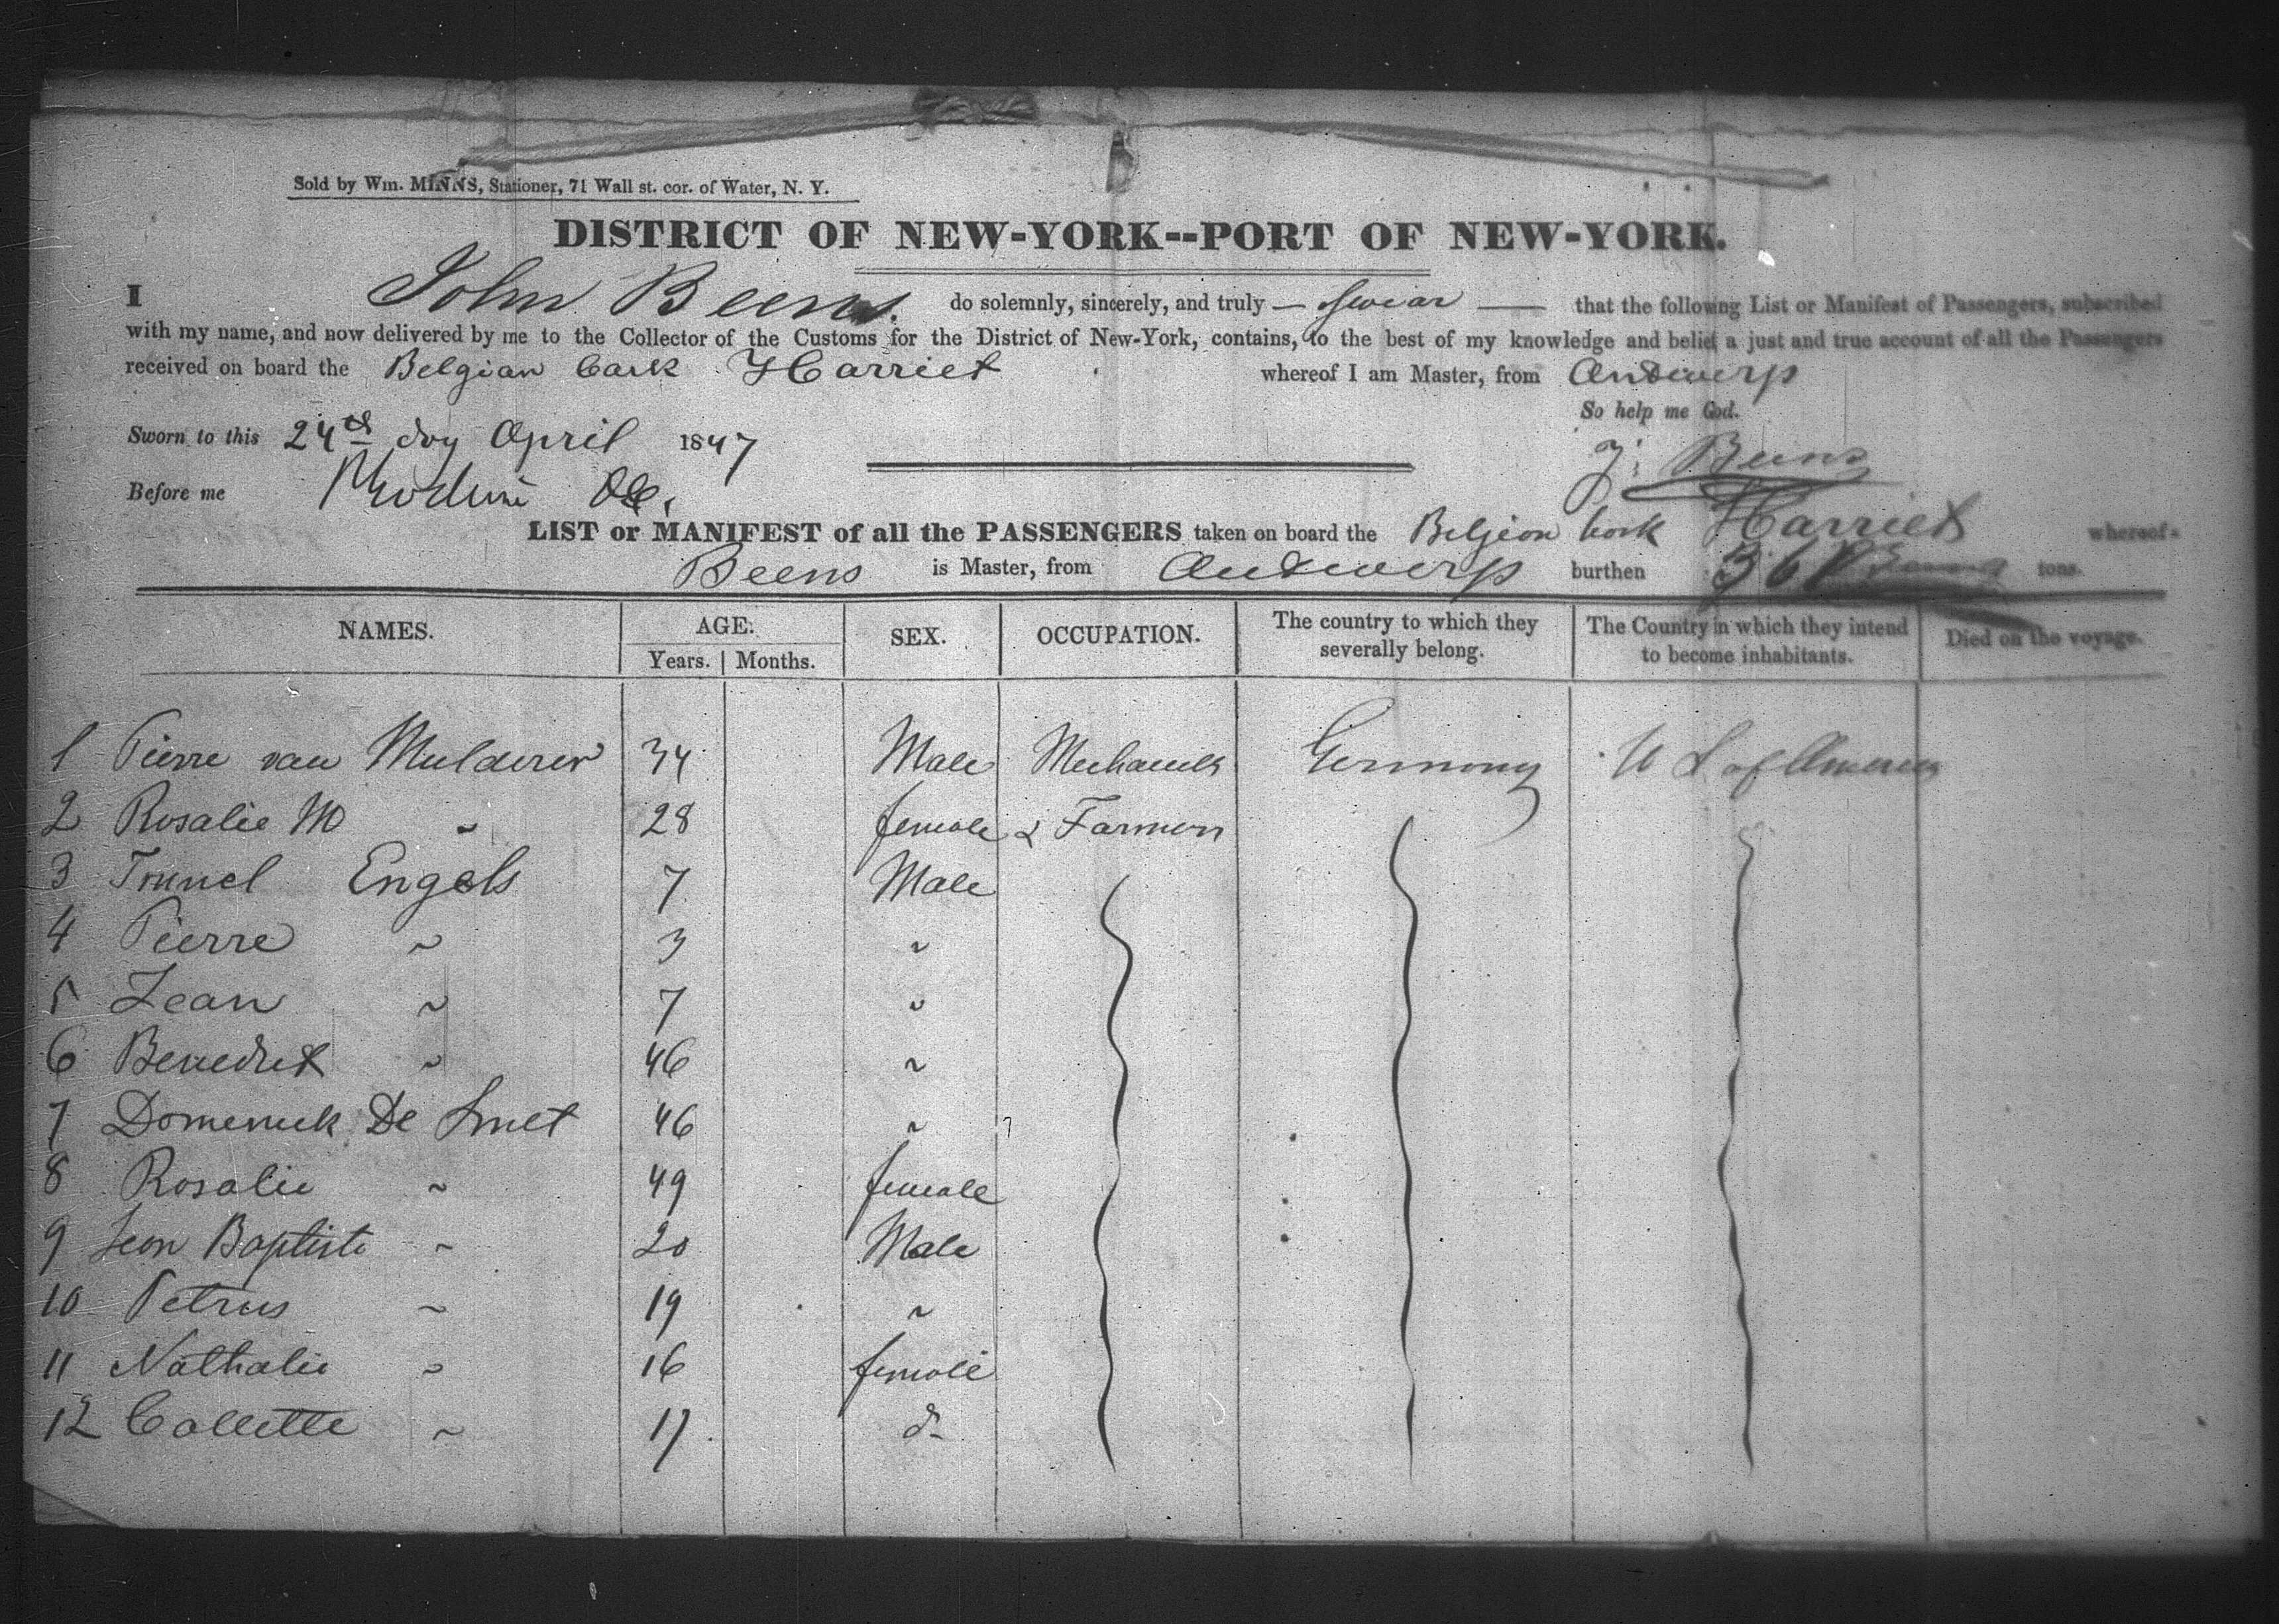 Sold by Wm. MINNS, Stationer, 71 Wall st. cor. of Water, N. Y.
DISTRICT OF NEW-YORK--PORT OF NEW-YORK.
I John Beens. do solemnly, sincerely, and truly — swear — that the following List or Manifest of Passengers, subscribed
with my name, and now delivered by me to the Collector of the Customs for the District of New-York, contains, to the best of my knowledge and belief a just and true account of all the Passengers
received on board the Belgian bark Harriet whereof I am Master, from Antwerp
So help me God.
Sworn to this 24th day April 1847
J. Beens
Before me
LIST or MANIFEST of all the PASSENGERS taken on board the Belgian bark Harriet whereof
Beens is Master, from Antwerp burthen tons.
NAMES. AGE. SEX. OCCUPATION. The country to which they severally belong. The Country in which they intend to become inhabitants. Died on the voyage.
Years. Months.
1 Pierre van Mulderer 34 Male Mechanick Germony U S of America
2 Rosalie M " 28 female & Farmer
3 Engels 7 Male
4 Pierre " 3 "
5 Jean " 7 "
6 Benedict " 46 "
7 Domenick De Smet 46 "
8 Rosalie " 49 female
9 Jean Baptiste " 20 Male
10 Petrus " 19 "
11 Nathalie " 16 female
12 Collette " 17 do